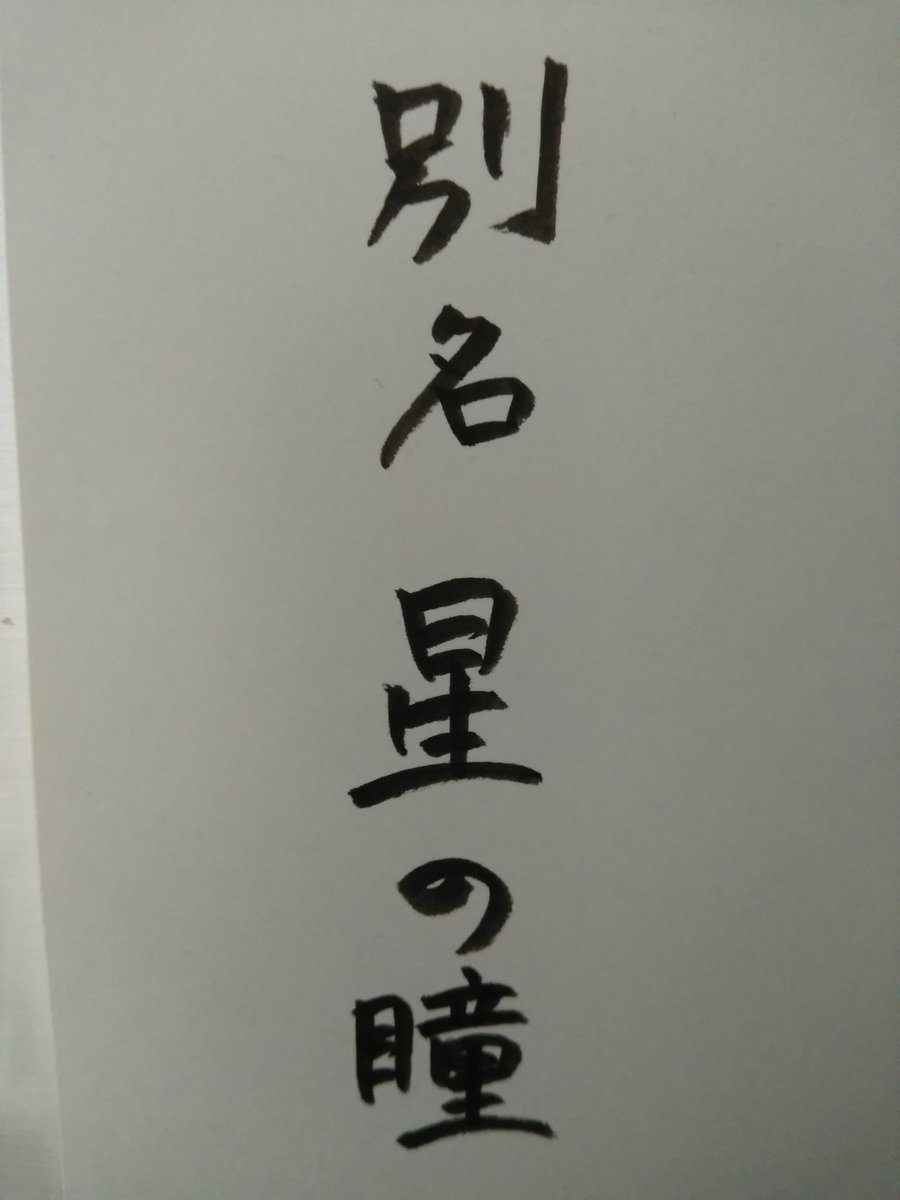 別名 星の瞳